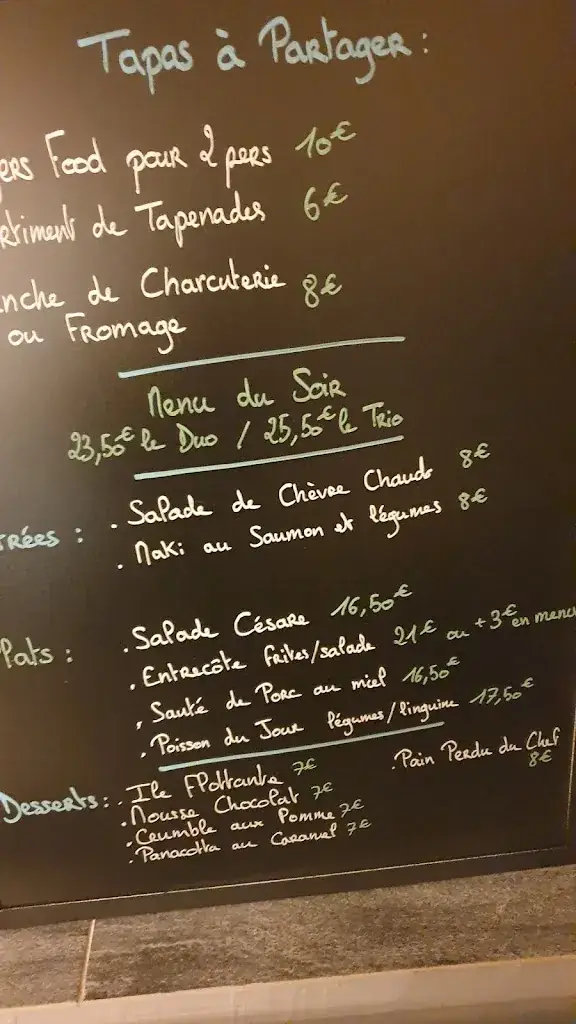 Tapas à Partager :
ers Food pour 2 pers 10€
rtiment de Tapenades 6€
nche de Charcuterie 8€
ou Fromage
Menu du Soir
23,50€ le Duo / 25,50€ le Trio
trées : . Salade de Chèvre Chaud 8€
. Maki au Saumon et légumes 8€
Plats : . Salade César 16,50€
. Entrecôte frites/salade 21€ ou +3€ en menu
. Sauté de Porc au miel 16,50€
. Poisson du Jour légumes/linguine 17,50€
Desserts : . Ile Flottante 7€
. Mousse Chocolat 7€
. Crumble aux Pomme 7€
. Panacotta au Caramel 7€
. Pain Perdu du Chef
8€